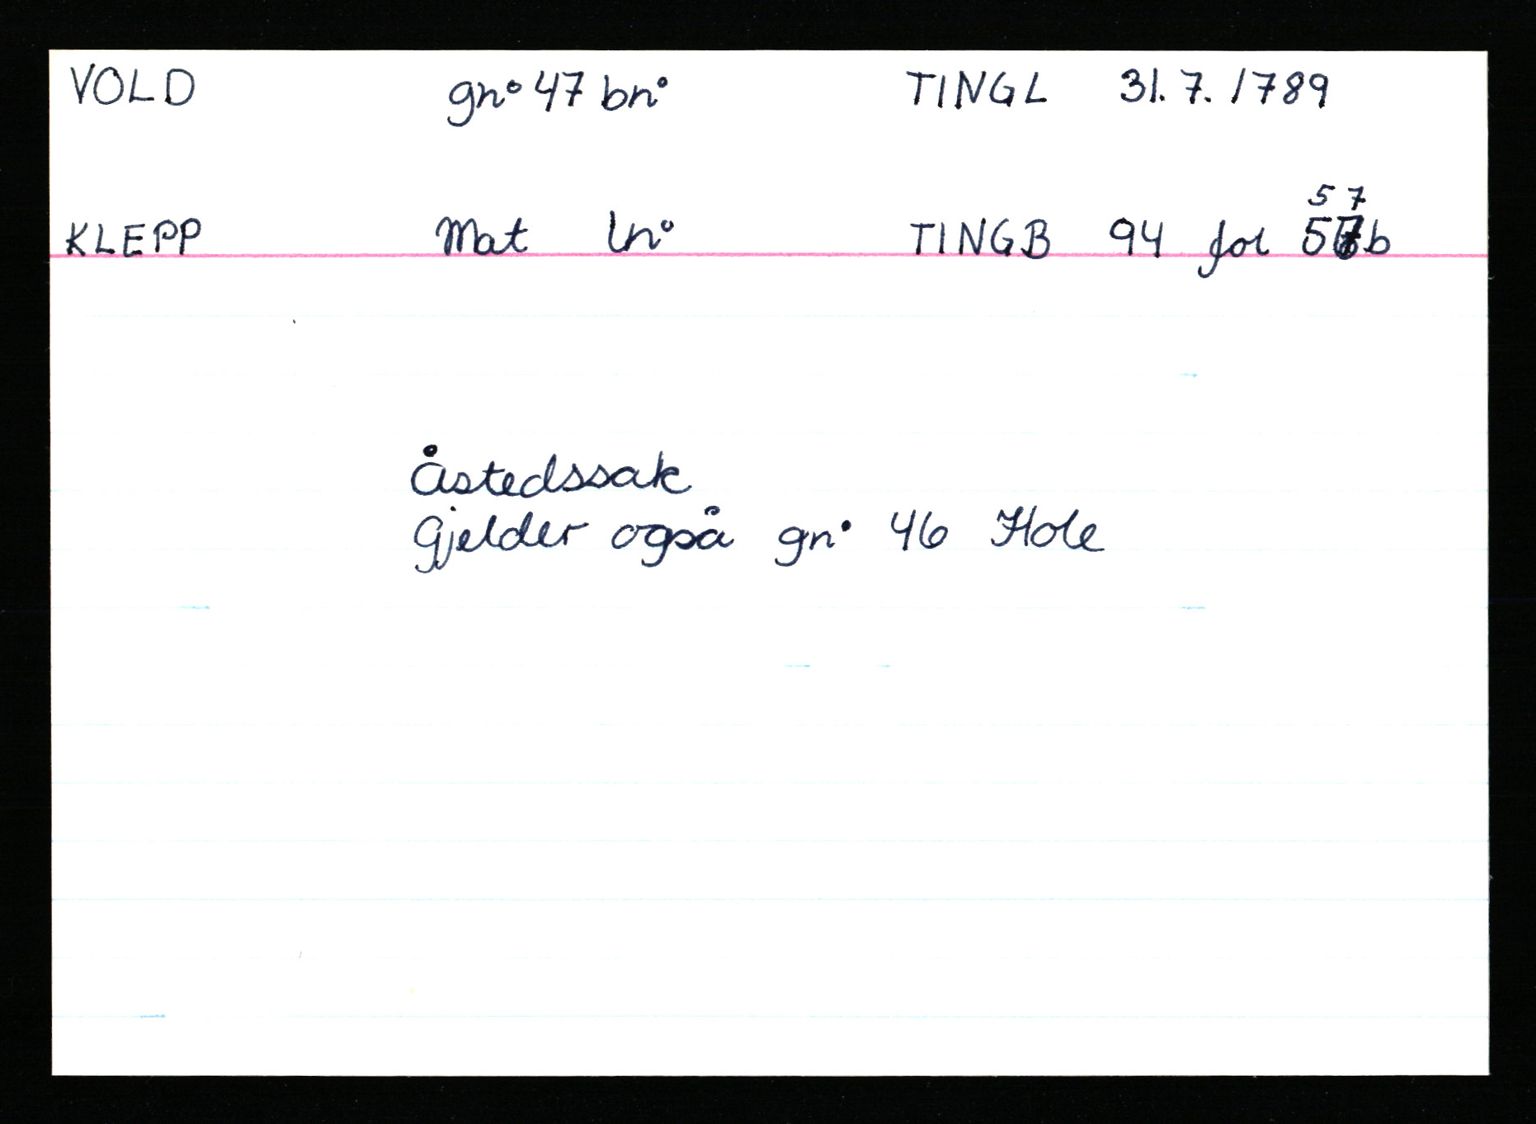 VOLD gn° 47 bn° TINGL 31.7.1789
5 7
KLEPP Mat ln° TINGB 94 fol 57b
Åstedssak
Gjelder også gn° 46 Hole